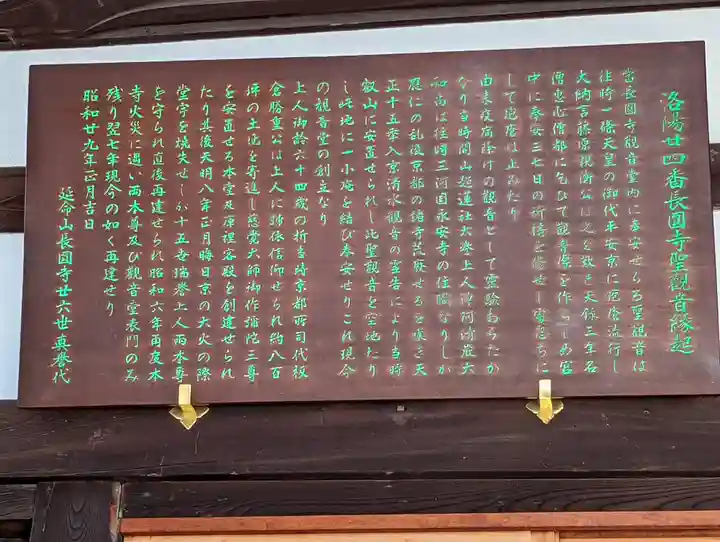 洛陽廿四番長圓寺聖觀音縁起
当長圓寺観音堂内に奉安せらる聖観音は
往時一條天皇の御代平安京に疫癘流行し
大納言藤原親衡公は之を歎き天保三年名
僧恵心僧都に乞ひて観音像を作らしめ宮
中に奉安三七日の祈祷を修せし霊忽ちに
して疫癘は止みたり
由来疫病除けの観音として霊験あらたか
なり当時開山起蓮社大誉上人
和尚は往時三河国永安寺の住職なりしか
應仁の乱後京都の諸寺荒廃せるを嘆き天
正十五年入京清水観音の霊告により当時
叡山に安置せられし此聖観音を空地たり
し此地に一小庵を結び奉安せりこれ現今
の観音堂の創立なり
上人御齢六十四歳の折当時京都所司代板
倉勝重公は上人に帰依信仰せられ約八百
坪の土地を寄進し慈覚大師御作弥陀三尊
を安置せる本堂及庫裡客殿を創建せられ
たり其後天明八年正月晦日京の大火の際
堂宇を焼失せしか十五世瑞誉上人両本尊
を守られ直後再建せられ昭和六年再度本
寺火災に遇い両本尊及び観音堂表門のみ
残り翌七年現今の如く再建せり
昭和廿九年正月吉日
延命山長圓寺廿六世真誉代